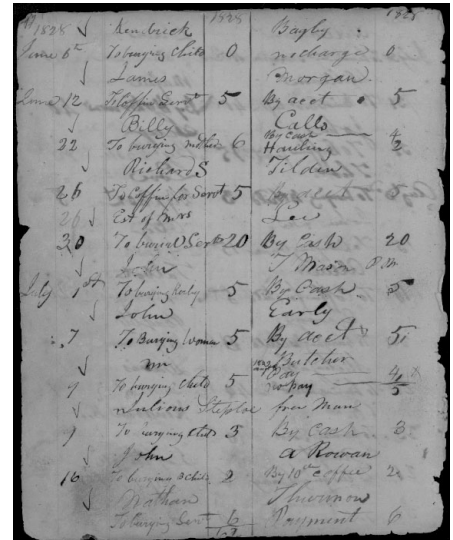 1828 Kenbrick 1828 Bagby 1828
June 6th To burying Child 0 no charge 0
James Morgan
June 12 To Coffin Servt 5 By acct 5
Billy Calls
22 To burying mother 6 By Cash 4
Hauling 2
Richard S Tilden
26 To Coffin for Servt 5 5
26 Est of Mrs Lee
30 To burial Servt 20 By Cash 20
John T Mason
July 1st To burying 5 By Cash 5
John Early
7 To Burying Woman 5 By acct 5
Wm Butcher
9 To burying Child 5 pay 4
no pay 5
Julious Steptoe free Man
9 To burying Child 3 By Cash 3
John A Rowan
16 To burying Child 2 By 10th Coffee 2
Nathan Thurmon
To burying Servt 6 Payment 6